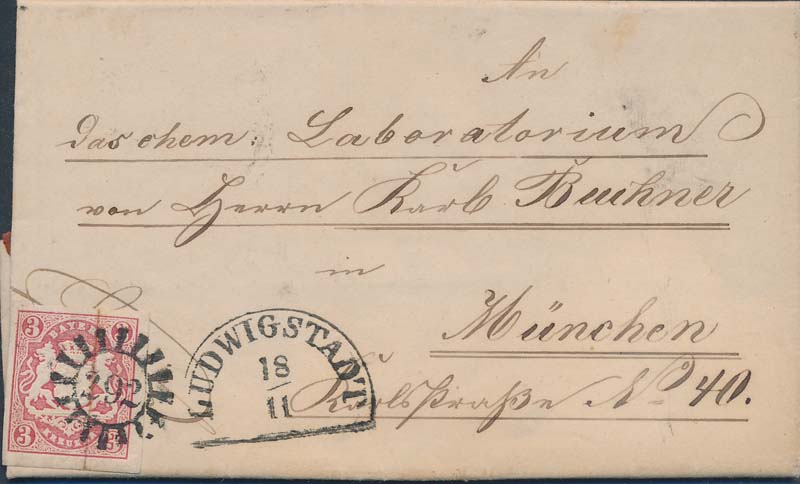 An
das chem: Laboratorium
von Herrn Karl Buchner
in
München
Karlstraße No 40.
LUDWIGSTADT
18
11
3
BAYERN
3
292
3
3